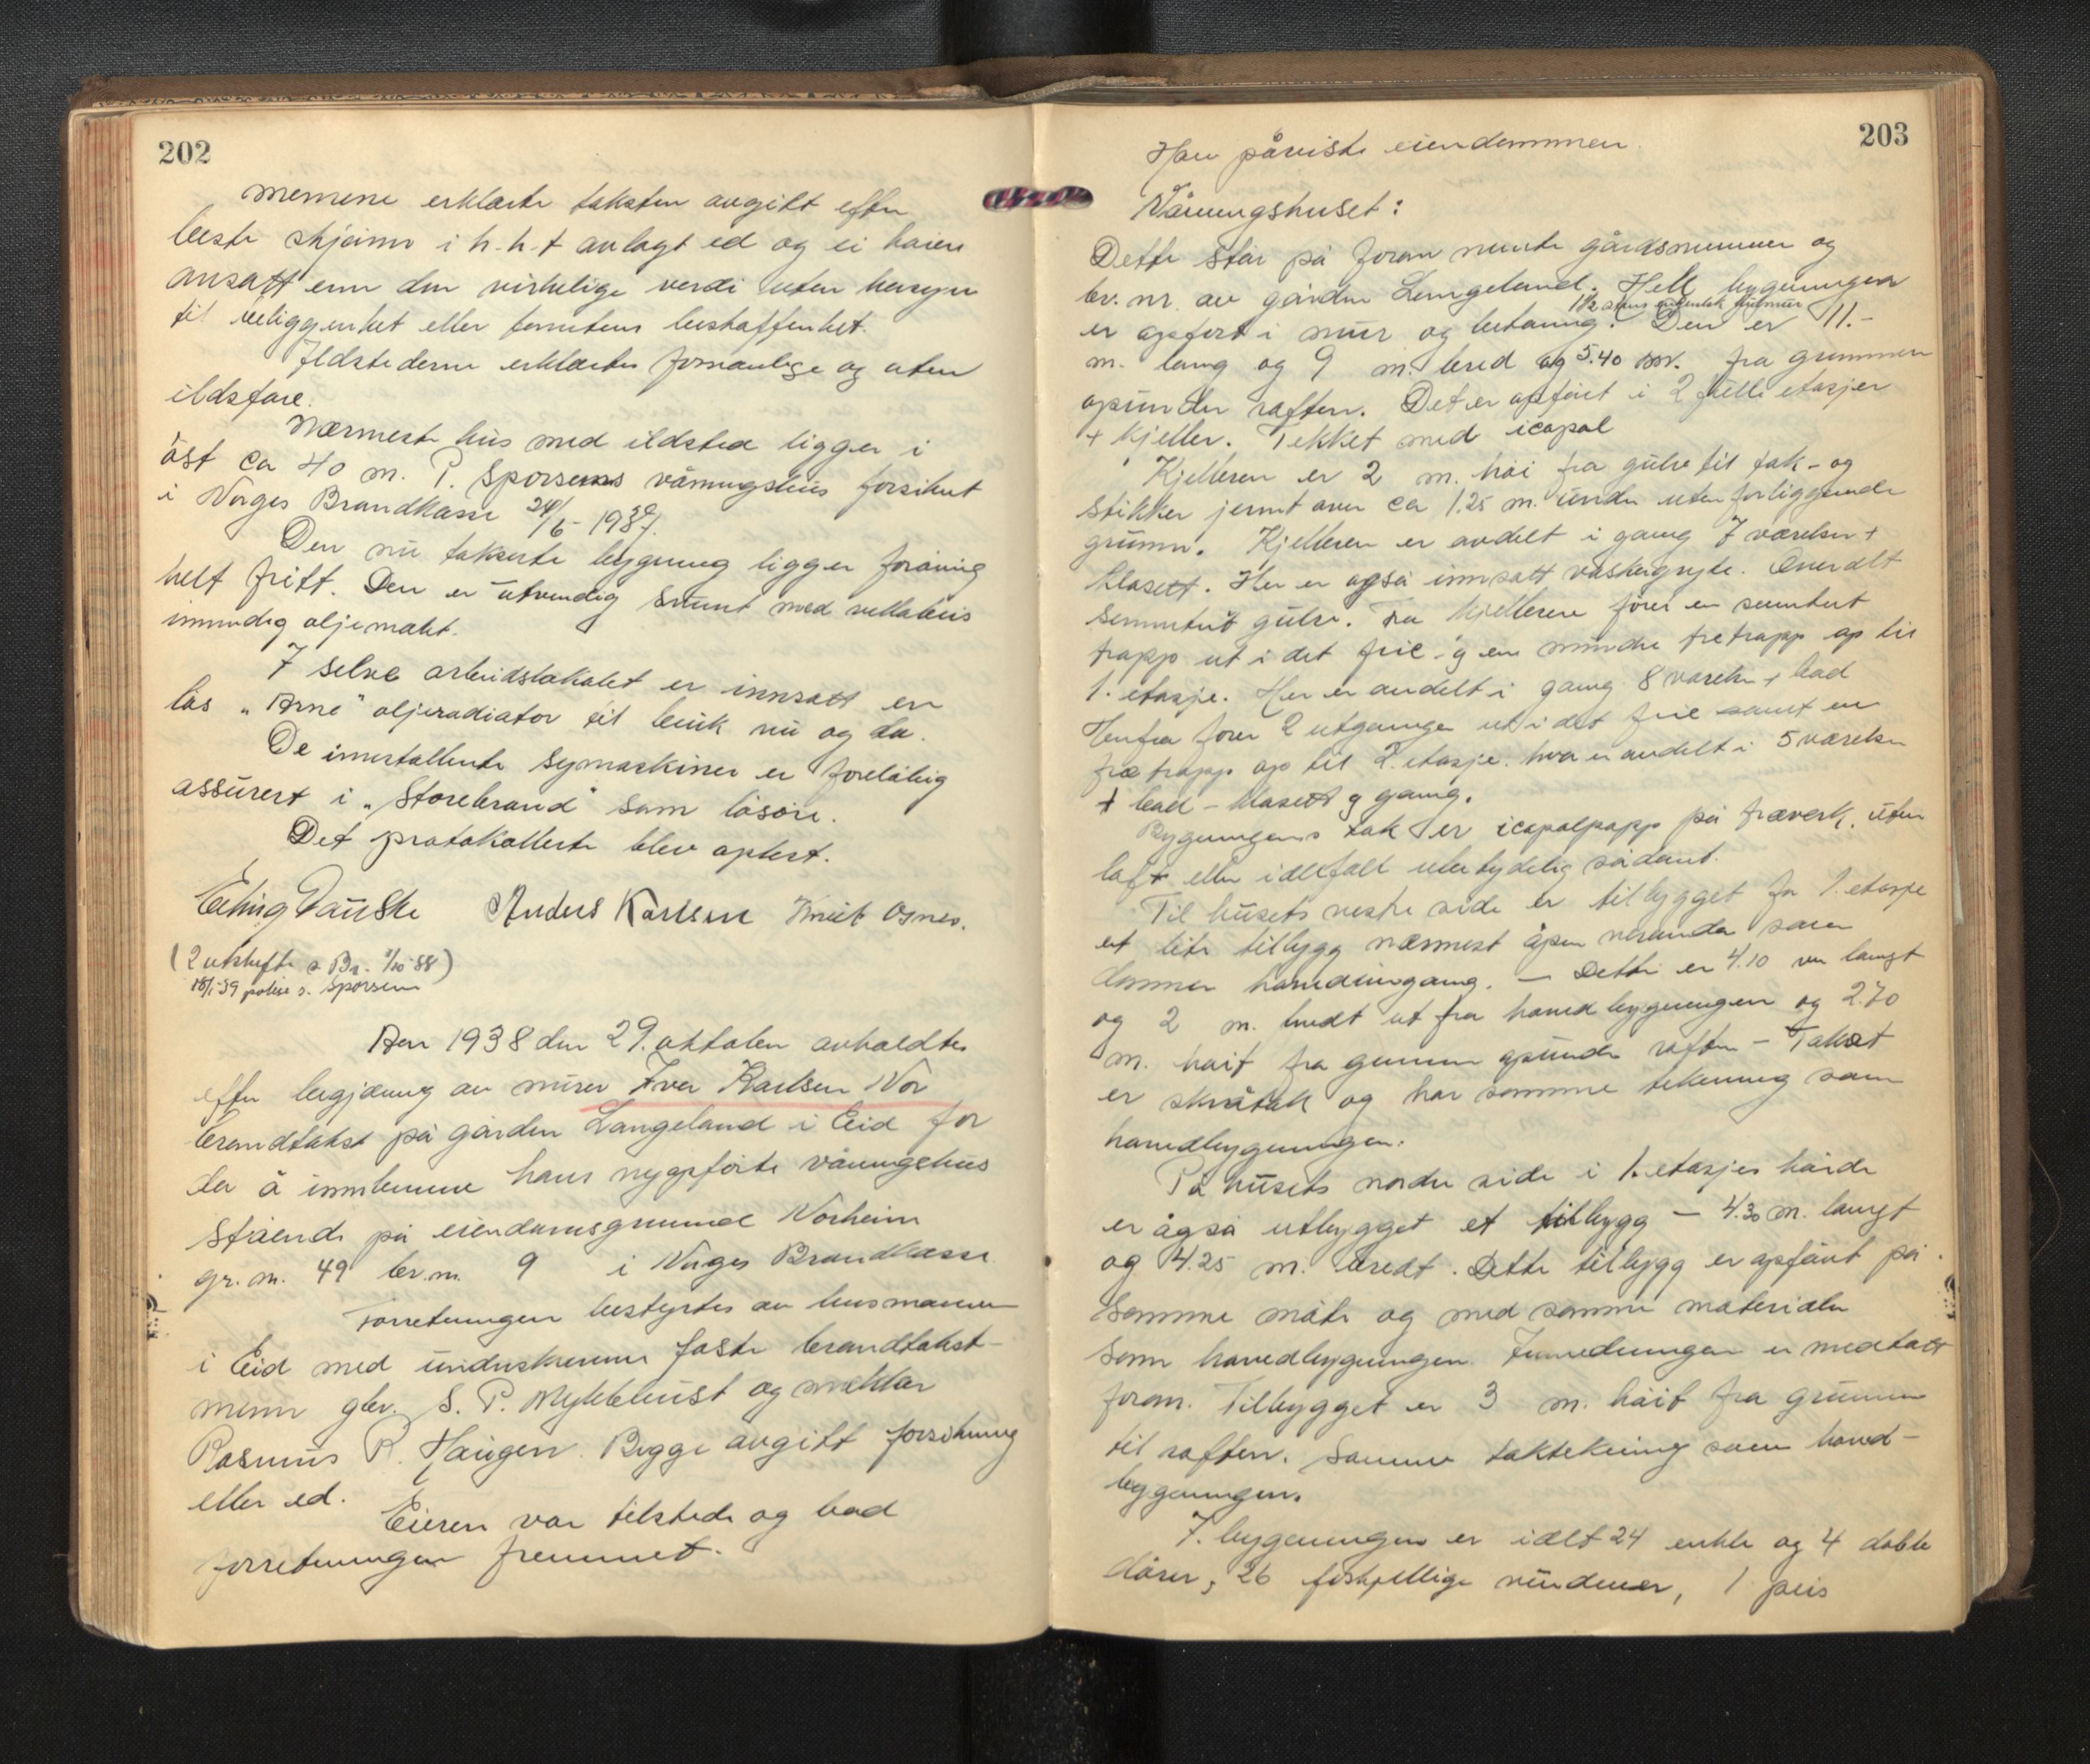 202
mennene erklærte taksten avgitt efter
beste skjønn i h.h.t avlagt ed og ei høiere
ansatt enn den virkelige verdi uten hensyn
til beliggenhet eller tomtens beskaffenhet.
Ildstederne erklærtes forsvarlige og uten
ildsfare.
Nærmeste hus med ildsted ligger i
øst ca 40 m. P. Sporsems våningshus forsikret
i Norges Brandkasse 24/6-1937.
Den nu takserte bygning ligger forøvrig
helt fritt. Den er utvendig
innvendig oljemalet.
I selve arbeidslokalet er innsatt en
løs "Arne" oljeradiator til bruk nu og da.
De innstallerte symaskiner er foreløbig
assurert i "Storebrand" som løsøre.
Det protokollerte blev oplest.
Erling Dauske Anders Karlsen Knut Osnes.
(2 utskrifter s Br. 1/10-38)
18/1-39 polise s. Sporsem
Aar 1938 den 29. oktober avholdtes
efter begjæring av murer Iver Karlsen Nor
brandtakst på garden Langeland i Eid for
der å innlemme hans nyopførte våningshus
stående på eiendomsgrunnet Norheim
gr. nr. 49 br. nr. 9 i Norges Brandkasse.
Forretningen bestyrtes av lensmannen
i Eid med underskrevne faste brandtakst-
menn gbr. S. P. Myklebust og mekler
Rasmus R. Haugen. Begge avgitt forsikring
eller ed.
Eieren var tilstede og bad
forretningen fremmet.
203
Han påviste eiendommen.
Våningshuset:
Dette står på foran nevnte gårdsnummer og
br. nr. av gården Langeland. Hele bygningen
1½ stens hulmur
er opført i mur og betong. Den er 11.-
m. lang og 9 m. bred og 5.40 m. fra grunnen
opunder raften. Det er opført i 2 fulle etasjer
+ kjeller. Tekket med icopal
Kjelleren er 2 m. høi fra gulv til tak - og
stikker jevnt over ca 1.25 m. under utenforliggende
grunn. Kjelleren er avdelt i gang 7 værelser +
klosett. Her er også innsatt vaskegryte. Overalt
sementert gulv. Fra kjelleren fører en sementert
trapp ut i det frie og en mindre tretrapp op til
1. etasje. Her er avdelt i gang 8 værelser + bad
Herfra fører 2 utganger ut i det frie samt en
tre trapp op til 2. etasje. hvor er avdelt i 5 værelser
+ bad - klosett og gang.
Bygningens tak er icopalpapp på treverk. uten
loft eller i allfall ubetydelig sådant.
Til husets vestre side er tilbygget for 1. etasje
et lite tilbygg nærmest åpen veranda som
danner hovedinngang. - Dette er 4.10 m langt
og 2 m. bredt ut fra hovedbygningen og 2.70
m. høit fra grunnen opunder raften - Taket
er skråtak og har samme tekning som
hovedbygningen.
På husets nordre side i 1. etasjes høide
er også utbygget et tilbygg - 4.30 m. langt
og 4.25 m. bredt. Dette tilbygg er opført på
samme måte og med samme materialer
som hovedbygningen. Innredningen er medtatt
foran. Tilbygget er 3 m. høit fra grunnen
til raften. Samme taktekning som hoved-
bygningen.
I bygningen er ialt 24 enkle og 4 doble
dører, 26 forskjellige vinduer, 1 peis